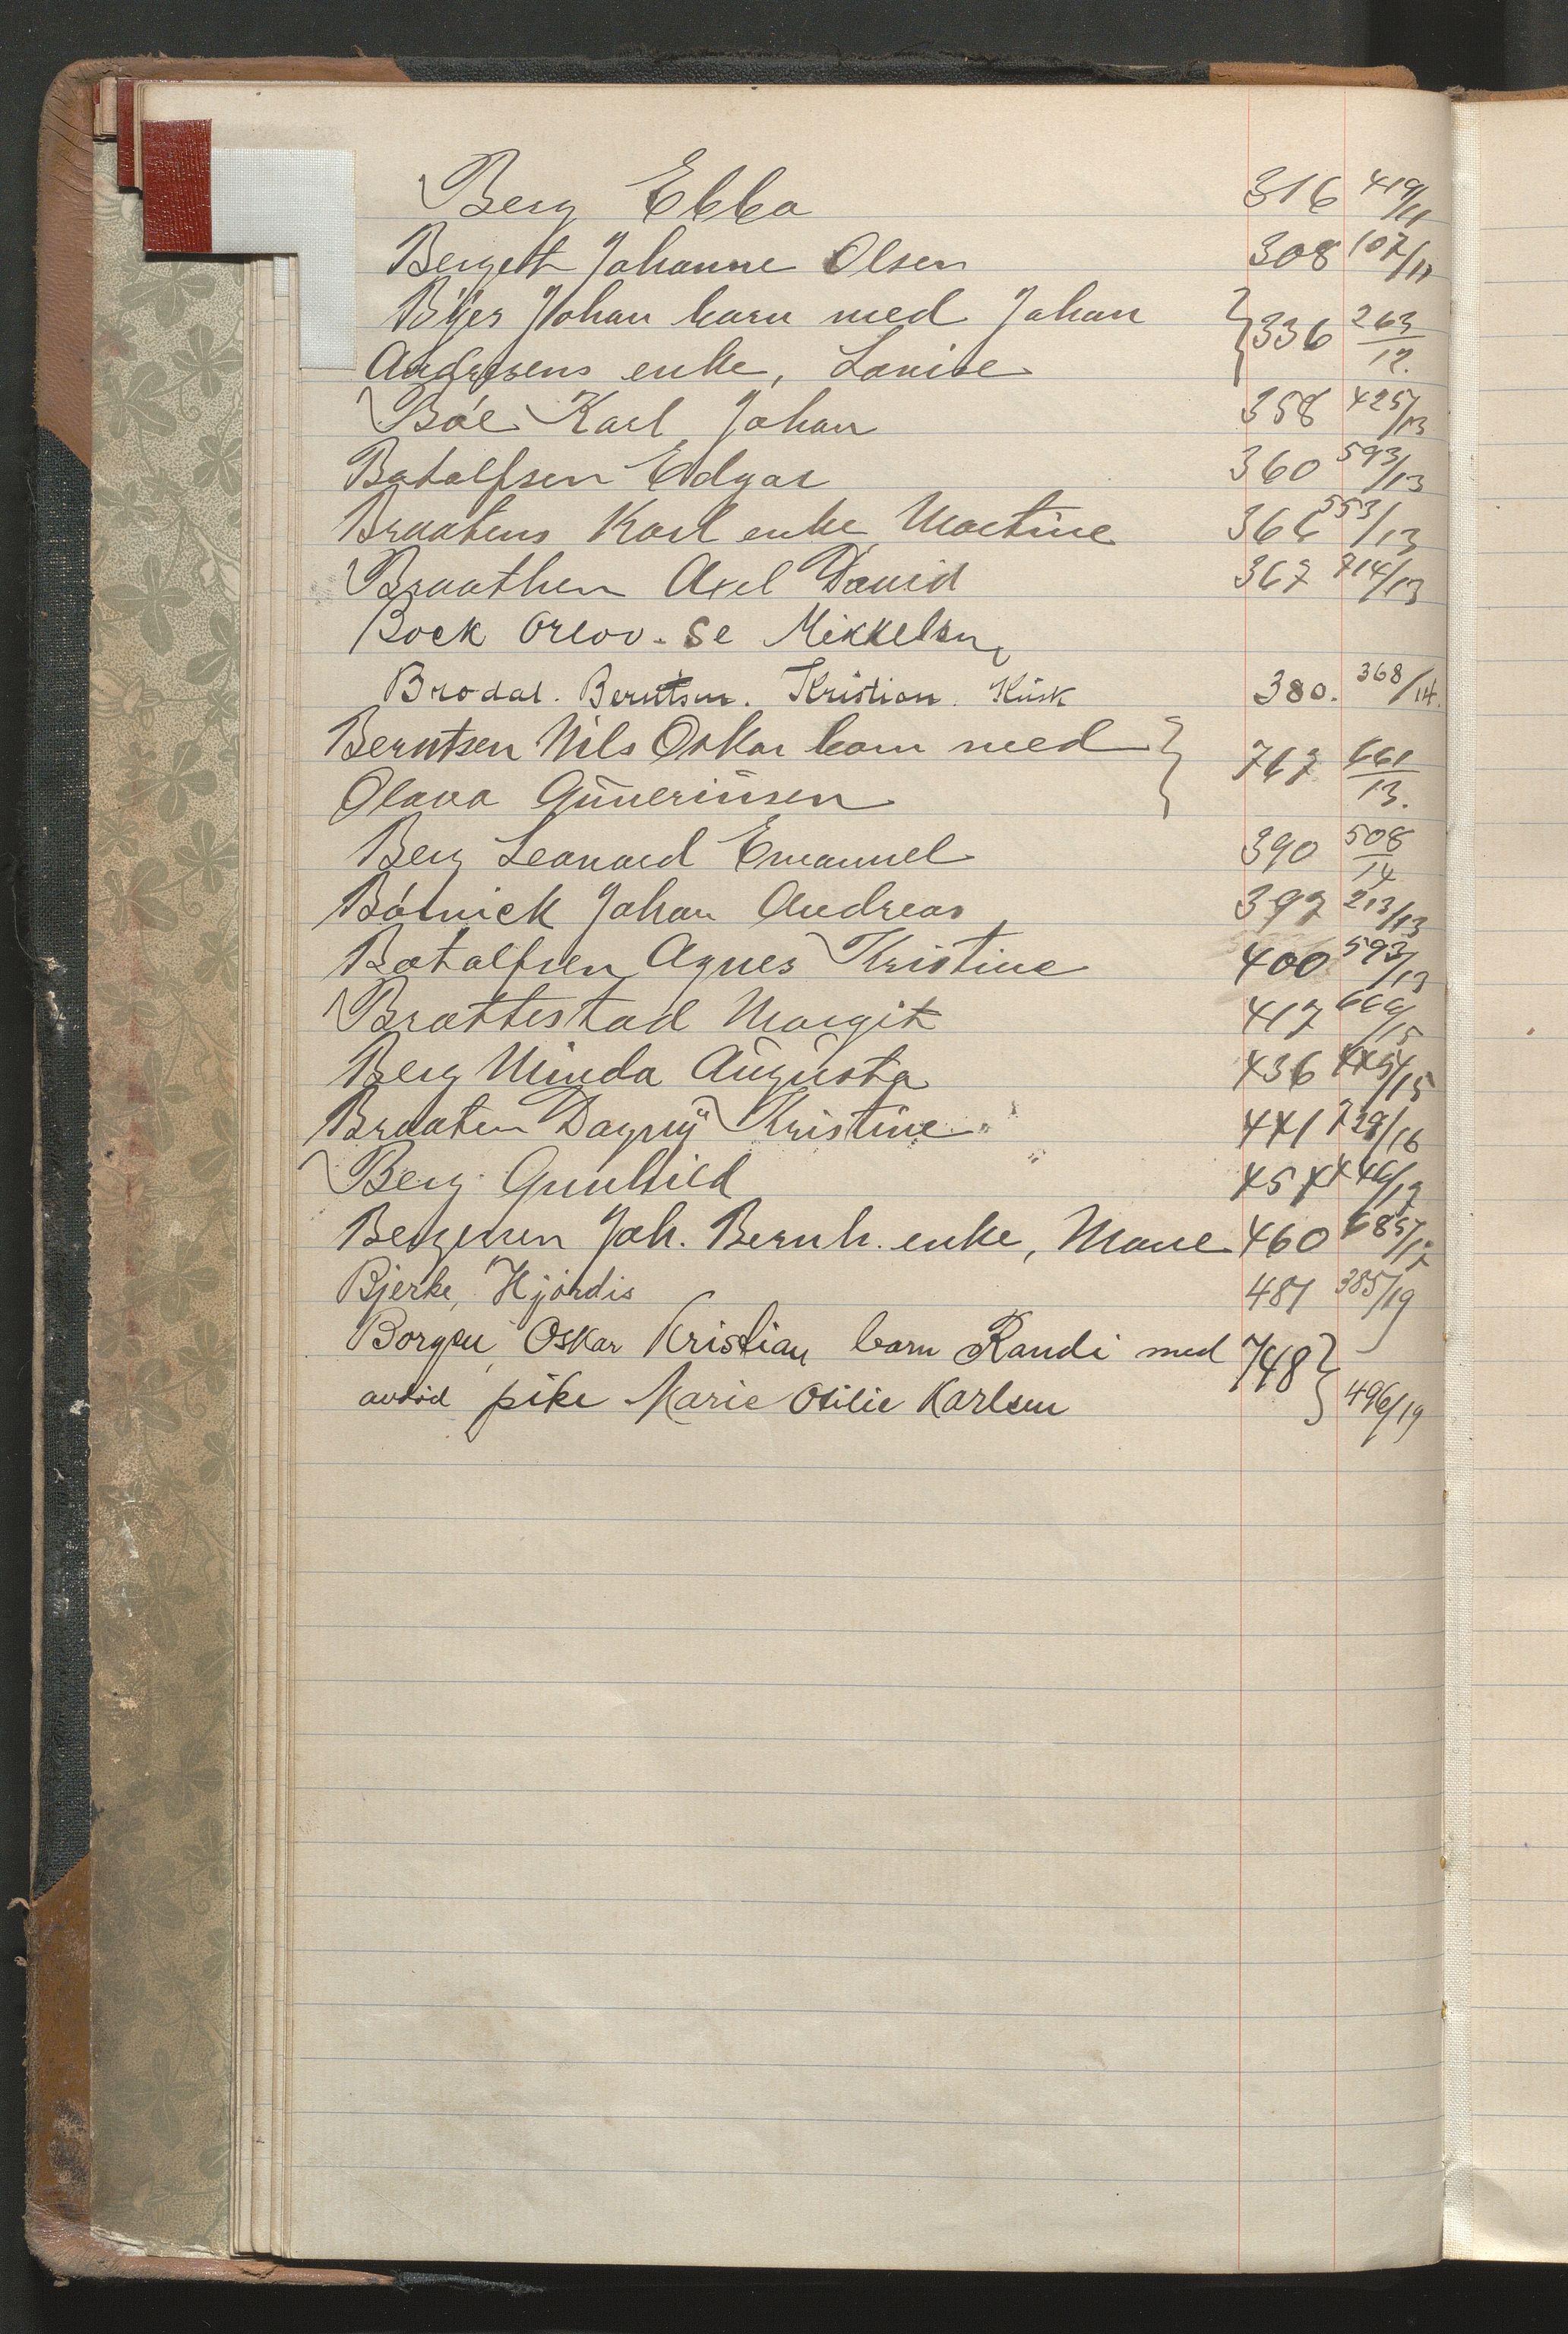 Berg Ebba 316 419/11
Bergeth Johanne Olsen 308 107/11
Byes Johan barn med Johan
Andresens enke, Lovise } 336 263/12.
Bøe Karl Johan 358 425/13
Botolfsen Edgar 360 593/13
Braatens Karl enke Martine 366 553/13
Braathen Axel David 367 714/13
Bock Orlov. Se Mikkelsen
Brodal. Berntsen. Kristian. Kusk 380. 368/14.
Berntsen Nils Oskar barn med
Olava Guneriusen } 767 661/13.
Berg Leonard Emanuel 390 508/14
Johan Andreas 397 213/13
Botolfsen Agnes Kristine 400 593/13
Brattestad Margit 417 669/15
Berg Minda Augusta 436 445/15
Braaten Dagny Kristine 441 739/16
Berg Gunhild 454 446/17
Bergersen Joh. Bernh. enke, Marie 460 685/17
Bjerke, Hjørdis 481 385/19
Borgen, Oskar Kristian barn Randi med
avdød pike Marie Otilie Karlsen 748 } 496/19